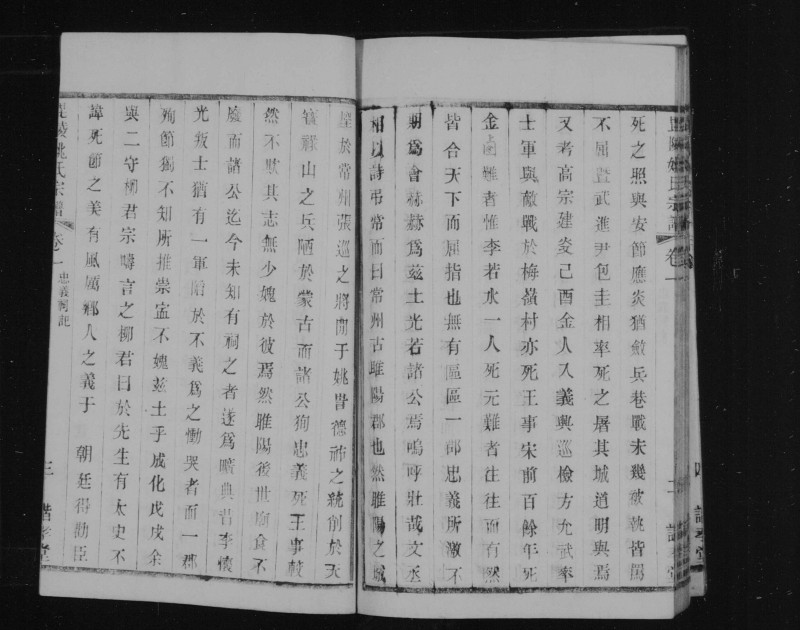 毘陵姚氏宗譜 卷一 二
死之照與安節應炎猶斂兵巷戰未幾被執皆罵
不屈曁武進尹包圭相率死之屠其城道明與焉
又考高宗建炎己酉金人入義興巡檢方允武率
士軍與敵戰於梅嶺村亦死王事宋前百餘年死
金難者惟李若水一人死元難者往往而有然
皆合天下而屈指也無有區區一郡忠義所激不
期爲會赫赫爲茲土光若諸公焉嗚呼壯哉文丞
相以詩弔常而曰常州古睢陽郡也然睢陽之城
堅於常州張巡之將閒于姚訔德祐之統削於天
寶祿山之兵陋於蒙古而諸公狥忠義死王事較
然不欺其志無少媿於彼焉然睢陽後世廟食不
廢而諸公迄今未知有祠之者遂爲曠典昔李懷
光叛士猶有一軍陷於不義爲之慟哭者而一郡
殉節獨不知所推崇寍不媿茲土乎成化戊戌余
與二守柳君宗疇言之柳君曰於先生有太史不
諱死節之美有風厲鄉人之義于 朝廷得勸臣
毘陵姚氏宗譜 卷一 忠義祠記 三